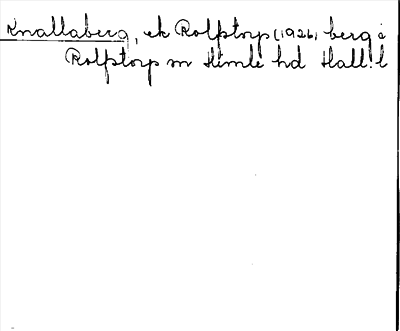 Knallaberg, ek Rolfstorp (1926) berg i
Rolfstorp sn Himle hd Hall. l